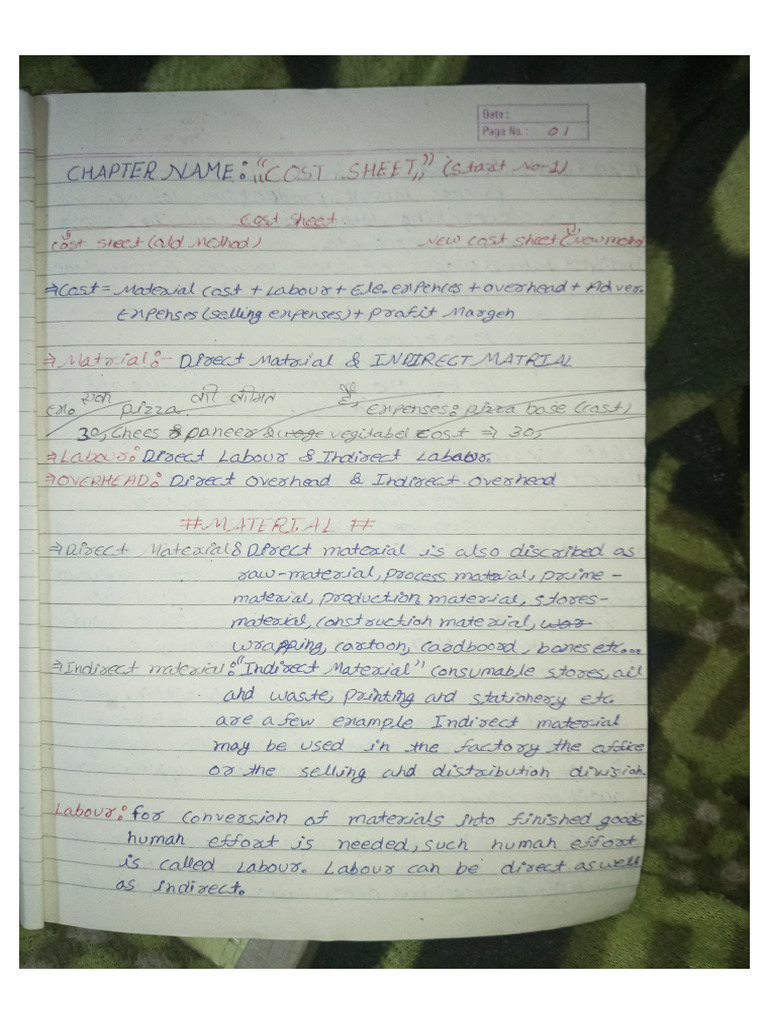 Date:
Page No.: 01
CHAPTER NAME: "COST SHEET" (Start No-1)
Cost Sheet.
Cost sheet (old Method) New cost sheet (New method)
⇒ Cost = Material cost + Labour + Ele. expences + overhead + Adver.
Expenses (selling expenses) + Profit Margen
⇒ Matrial:- Direct Matrial & INDIRECT MATRIAL
Ex. एक pizza की कीमत है, expenses: pizza base (cost)
30, chees & paneer & vegitabel cost ⇒ 30,
⇒ Labour: Direct Labour & Indirect Labour.
⇒ OVERHEAD: Direct overhead & Indirect overhead
# MATERIAL #
⇒ Direct Material: Direct material is also discribed as
raw-material, process material, prime-
material, production material, stores-
material, construction material,
wrapping, cartoon, cardboard, bones etc...
⇒ Indirect material: "Indirect Material" consumable stores, oil
and waste, printing and stationery etc.
are a few example Indirect material
may be used in the factory the office
or the selling and distribution division.
Labour: for conversion of materials into finished goods
human effort is needed, such human effort
is called Labour. Labour can be direct as well
as indirect.